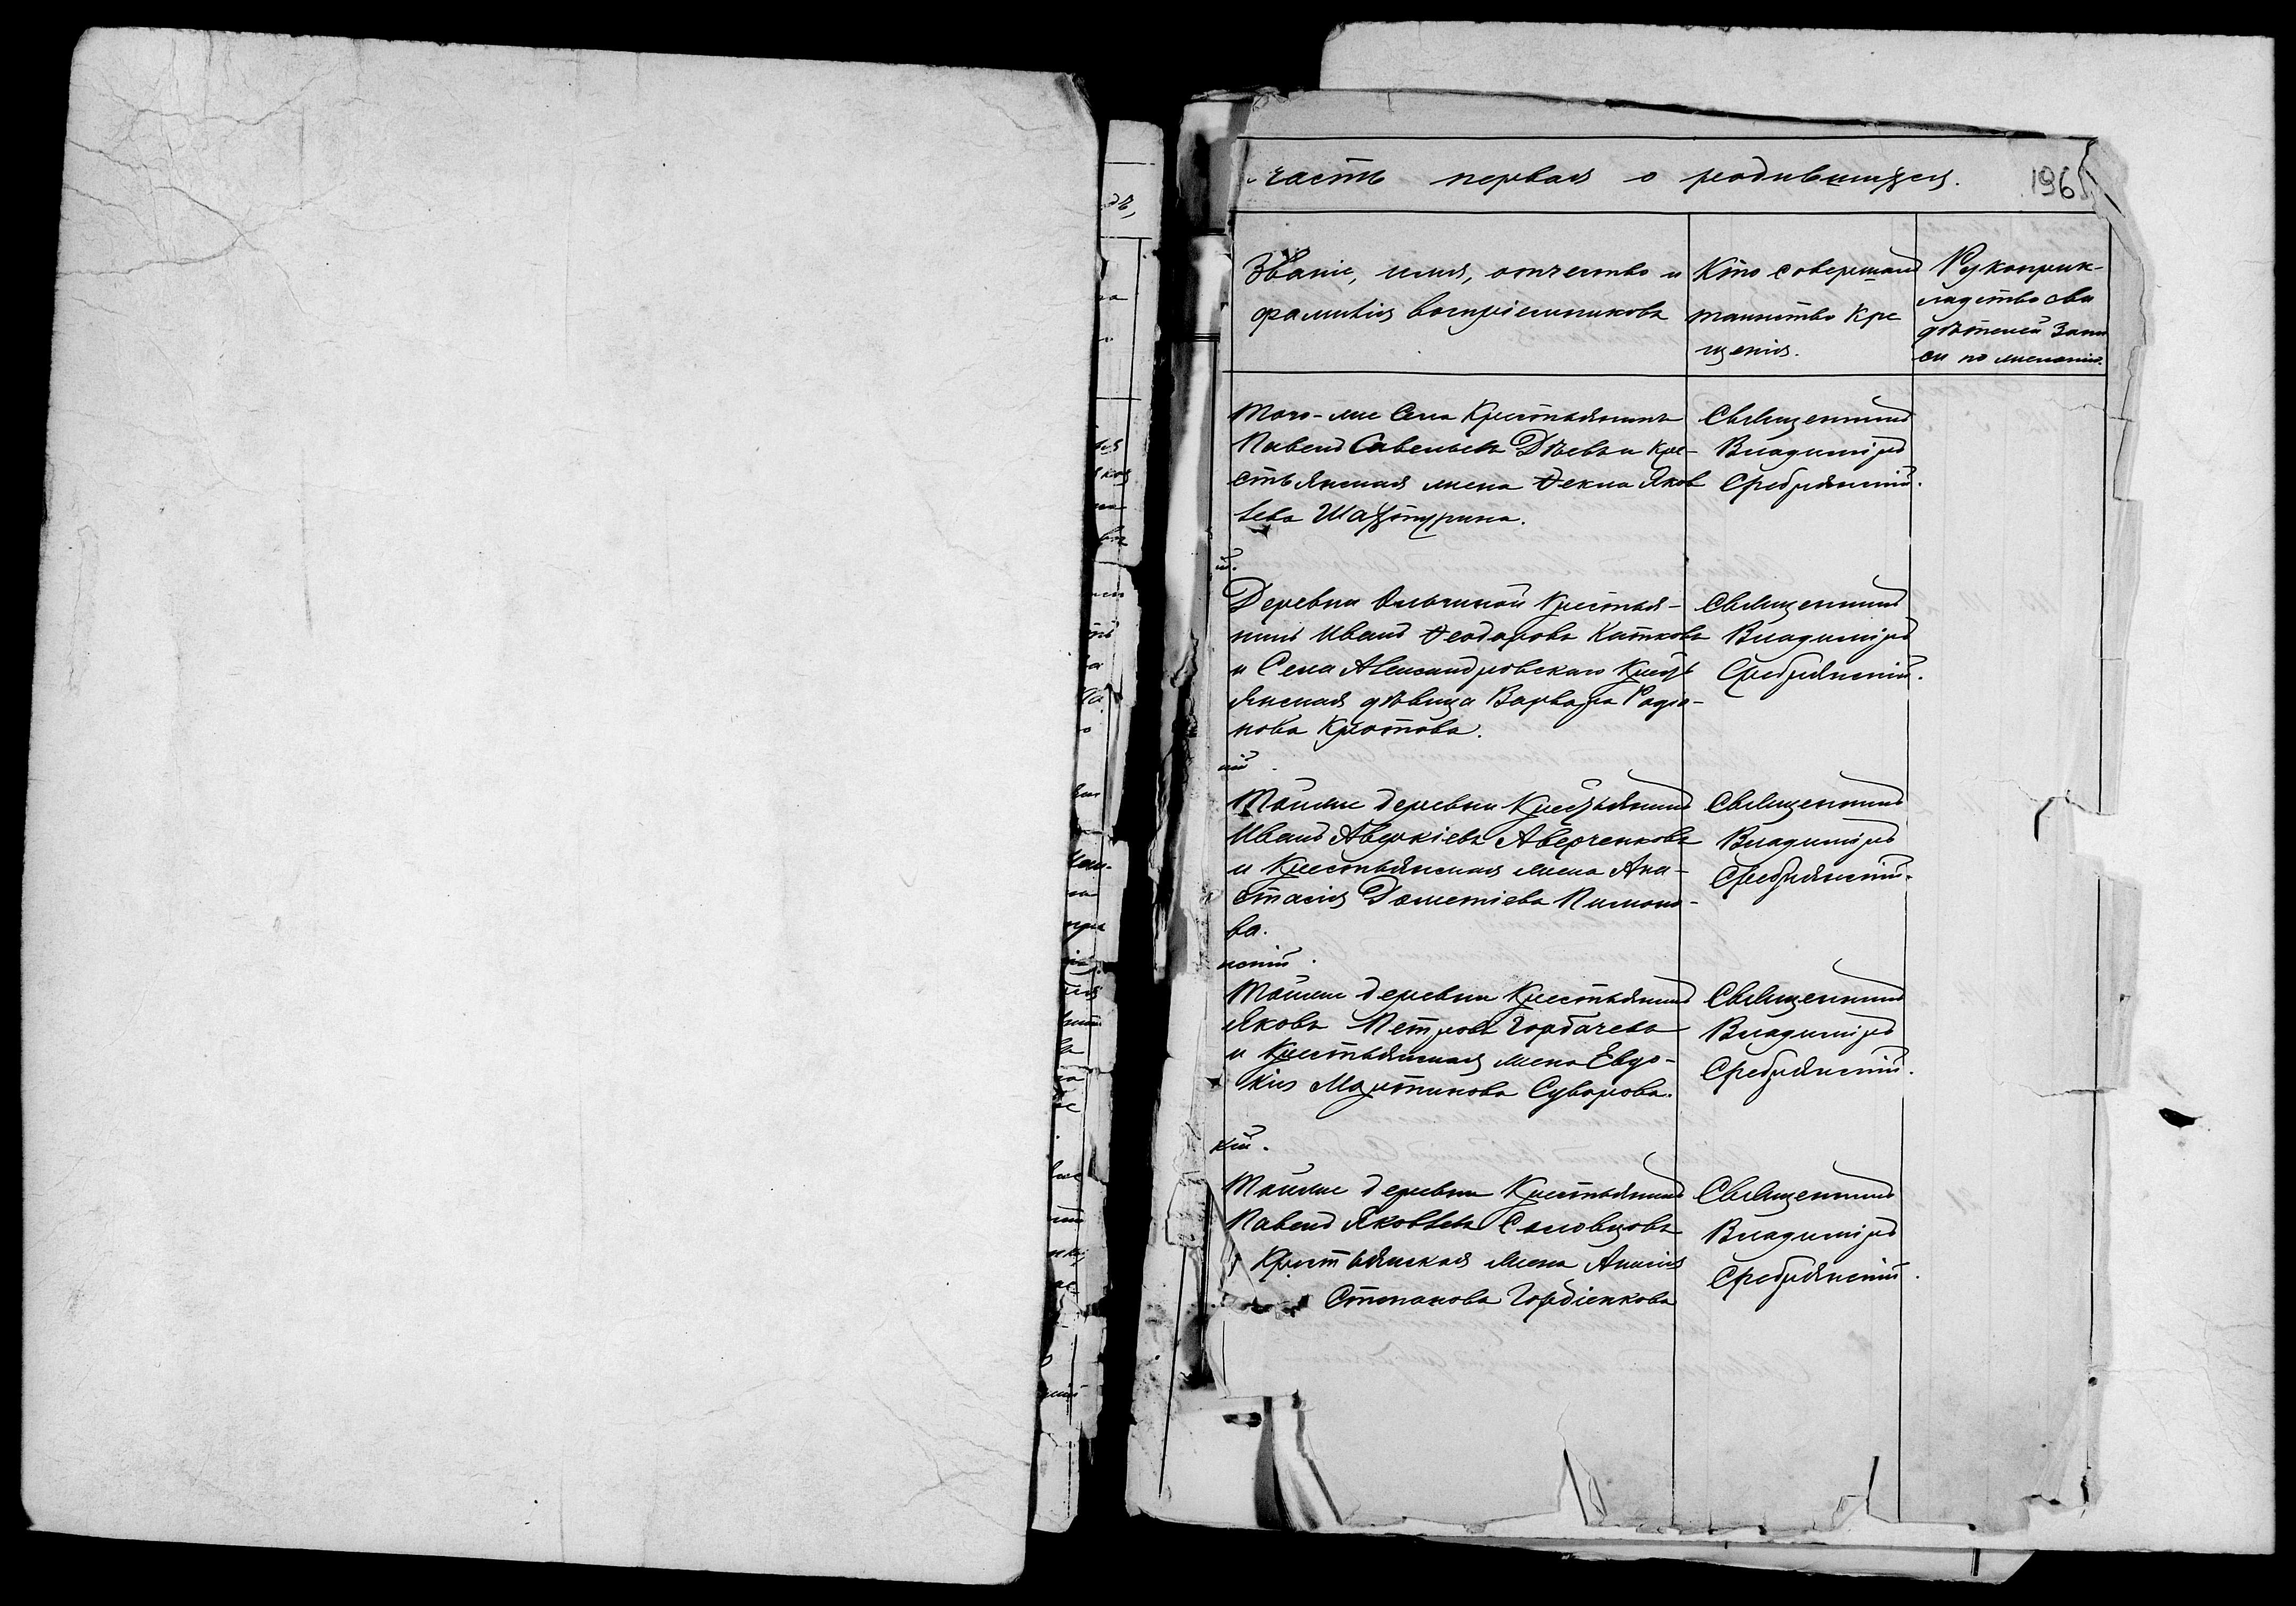 часть первая о родившихся. 196
Званіе, имя, отчество и
фамилія воспріемниковъ
Кто совершалъ
таинство Кре
щенія.
Рукоприк-
ладство сви
дѣтелей запи
си по желанію.
Того-же Села Крестьянинъ
Павелъ Савельевъ Дѣевъ и кре-
стьянская жена Ѳекла Яков
лева
Священникъ
Владиміръ
Сребрянскій.
й.
Деревни Ольгиной Крестья-
нинъ Иванъ Ѳеодоровъ Катковъ
и Села Александровскаго Крест
янская дѣвица Варвара Радіо-
нова Кротова.
Священникъ
Владиміръ
Сребрянскій.
ій
Тойже деревни Крестьянинъ
Иванъ Аверкіевъ Аверченковъ
и Крестьянская жена Ана-
стасія Дометіева Пимоно-
ва.
Священникъ
Владиміръ
Сребрянскій.
нскій.
Тойже деревни Крестьянинъ
Яковъ Петровъ Горбачевъ
и Крестьянская жена Евдо-
кія Мартинова Суворова.
Священникъ
Владиміръ
Сребрянскій.
кій.
Тойже деревни Крестьянинъ
Павелъ Яковлевъ Соловцовъ
Крестьянская жена Анисія
Степанова Гордіенкова
Священникъ
Владиміръ
Сребрянскій.